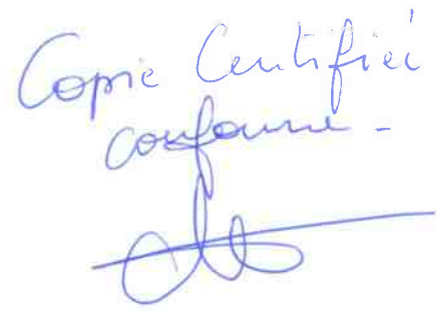 Copie Certifiée
conforme -